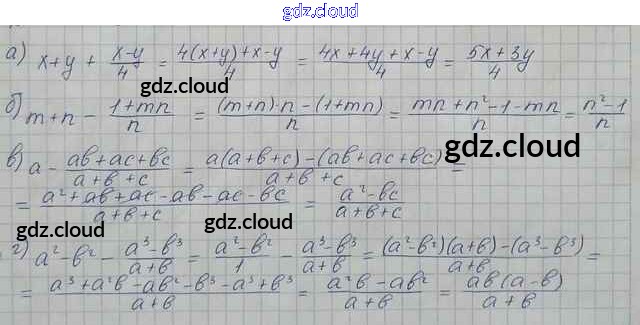 gdz.cloud
а) x+y + (x-y)/4 = (4(x+y)+x-y)/4 = (4x+4y+x-y)/4 = (5x+3y)/4
gdz.cloud
б) m+n - (1+mn)/n = ((m+n)·n-(1+mn))/n = (mn+n²-1-mn)/n = (n²-1)/n
в) a - (ab+ac+bc)/(a+b+c) = (a(a+b+c)-(ab+ac+bc))/(a+b+c) =
gdz.cloud
= (a²+ab+ac-ab-ac-bc)/(a+b+c) = (a²-bc)/(a+b+c)
gdz.cloud gdz.cloud
г) a²-b² - (a³-b³)/(a+b) = (a²-b²)/1 - (a³-b³)/(a+b) = ((a²-b²)(a+b)-(a³-b³))/(a+b) =
= (a³+a²b-ab²-b³-a³+b³)/(a+b) = (a²b-ab²)/(a+b) = (ab(a-b))/(a+b)